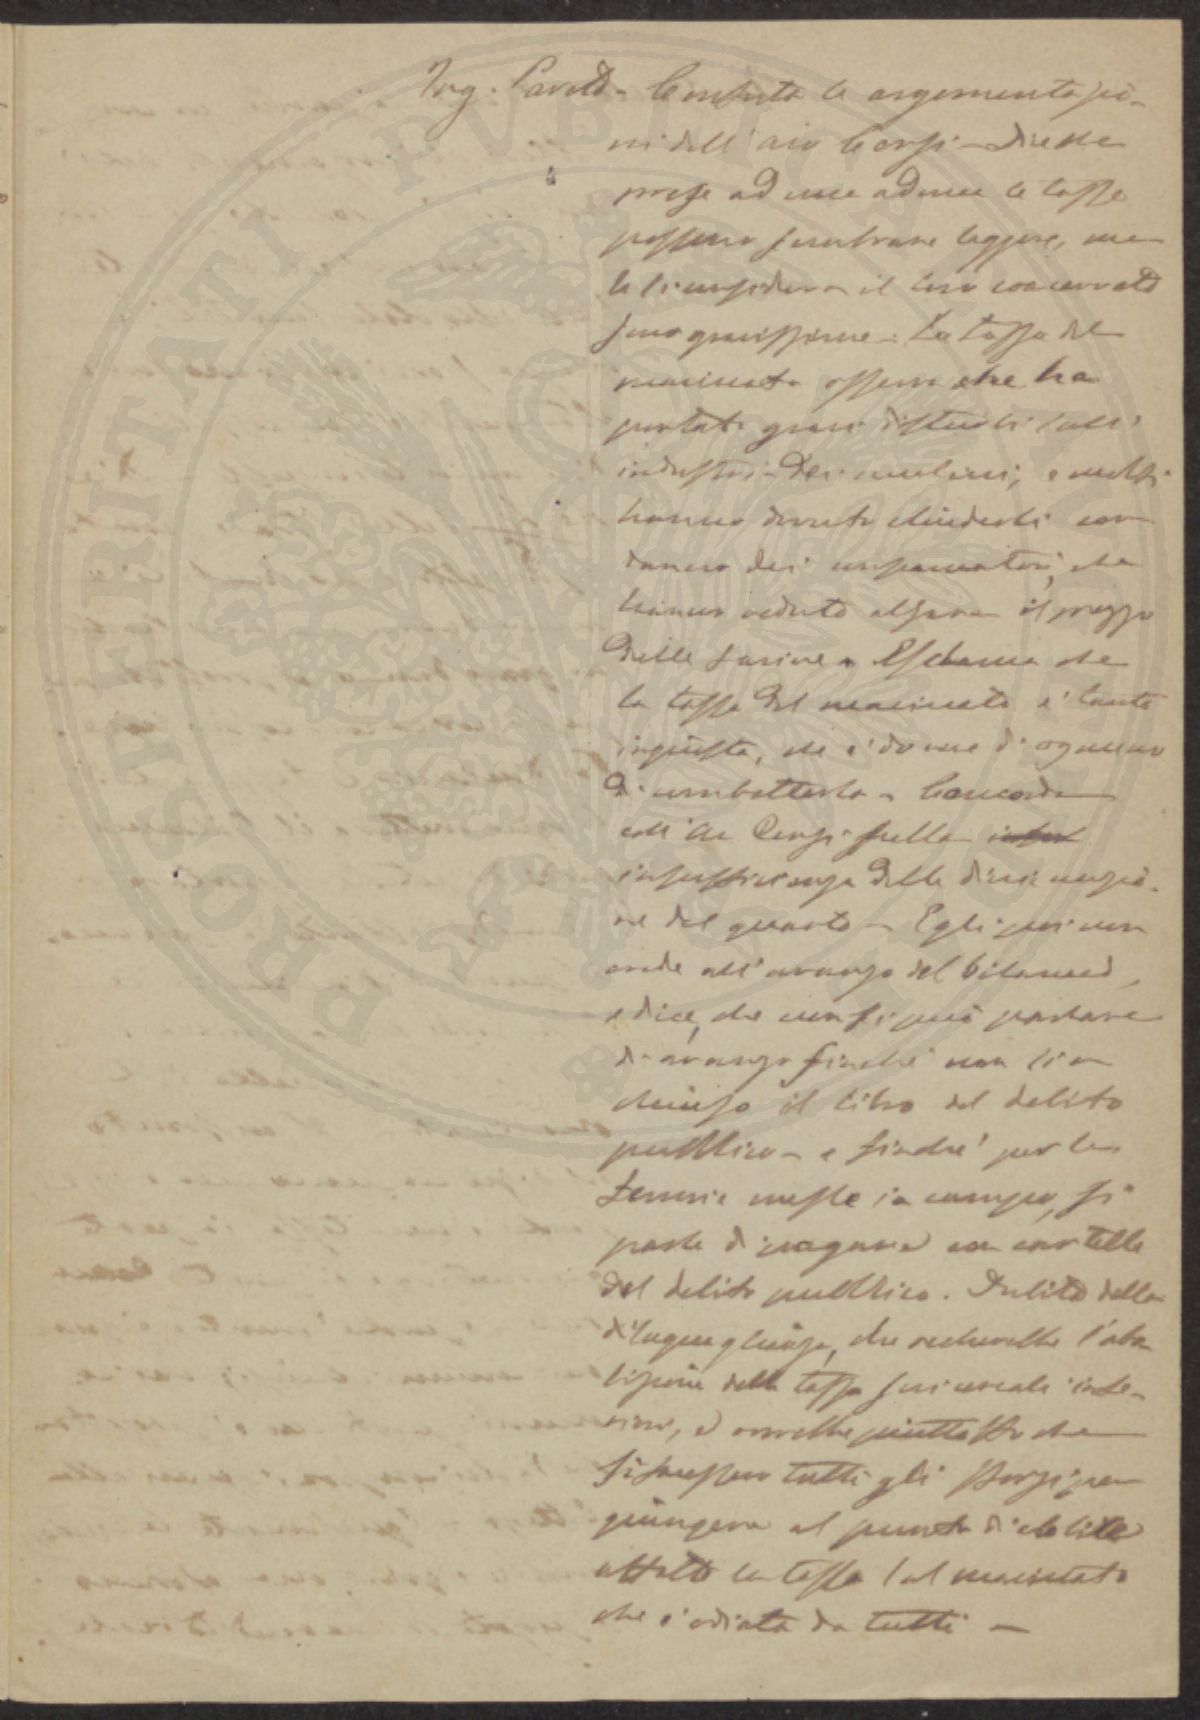 Ing. Pavato - Confuta le argomentazio-
ni dell'avv Corsi - Dice che
prese ad una ad una le tasse
possono sembrare leggere, ma
se si considera il loro concerrato
sono gravissime. La tassa del
macinato osserva che ha
portati gravi disturbi sull'
industria dei mulini, e molti
hanno dovuto chiuderli con
danno dei consumatori, che
hanno veduto alzare il prezzo
delle farine - Esclama che
la tassa del macinato è tanto
ingiusta, che è dovere di ognuno
di combatterla - Concorda
coll'Av Corsi sulla
insufficienza della diminuzio-
ne del quarto - Egli poi non
crede all'avanzo del bilancio,
e dice, che non si può parlare
di avanzo finché non sia
chiuso il libro del debito
pubblico - e finché per le
ferrovie messe in campo, si
parla di pagare con cartelle
del debito pubblico. Dubita della
disuguaglianza, che recherebbe l'abo-
lizione della tassa sui cereali infe-
riori, e vorrebbe piuttosto che
si facessero tutti gli sforzi per
giungere al punto di abolire
affatto la tassa sul macinato
che è odiata da tutti -
PROSPERITATI PUBLICAE